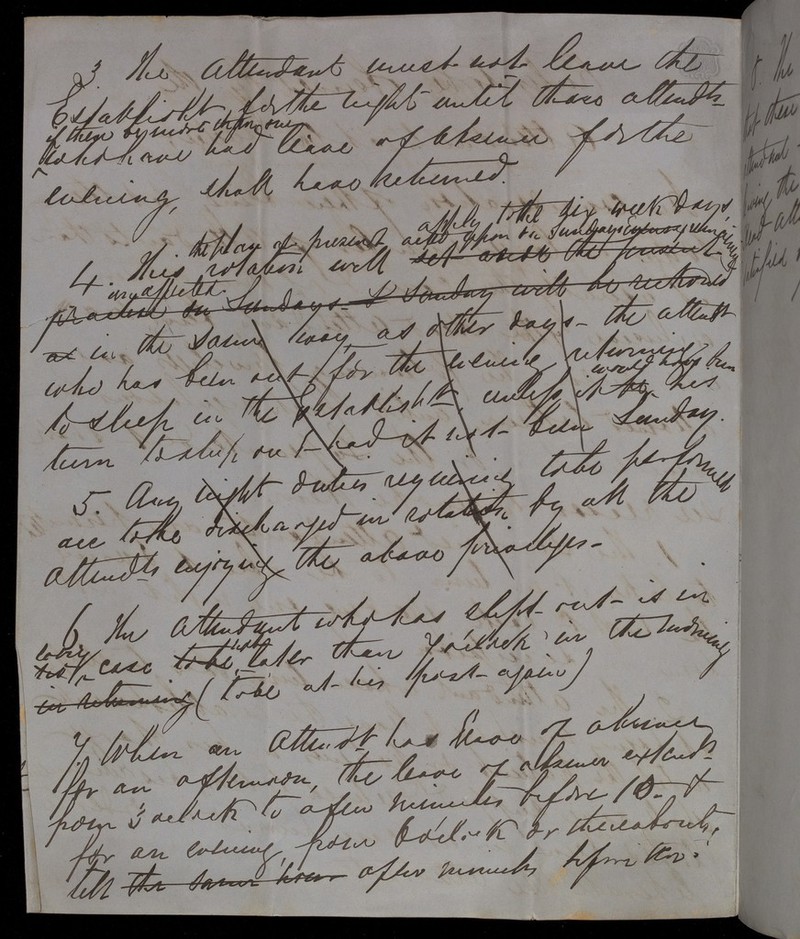 3 The Attendant must not leave the
Establisht for the night until those attendts
if there be more than one
who have had leave of absence for the
evening, shall have returned.
apply to the six week days,
the plan at present acted upon on Sundays
4. This rotation will set aside the present
unaffected
practice on Sundays - & Sunday will be reckoned
as in the same way, as other days - the attendt
who has been out for the evening returning
would have been
to sleep in the Establisht, unless it his
turn to sleep out had it not been Sunday.
5. Any night duties requiring to be performed
are to be discharged in rotation by all the
attendts enjoying the above privileges -
6 The Attendant who has slept out is in
every case to be not later than 7 o'clock in the morning
in returning (to be at his post again)
7. When an Attendt has leave of absence
for an afternoon, the leave of absence extends
from 3 oclock to a few minutes before 10 - &
for an evening from 6 o'clock or thereabouts,
till the same hour a few minutes before ten.
8. The